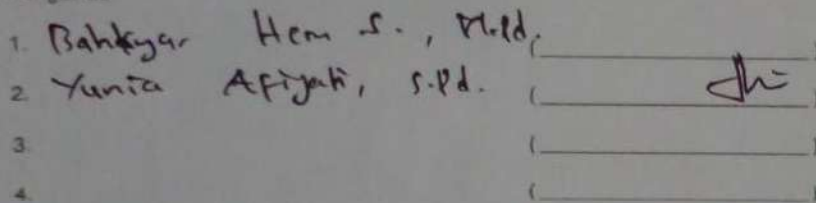 1. Bahkyar Hem S., M.Pd. (
2. Yunia Afiyati, S.Pd. (
3. (
4. (